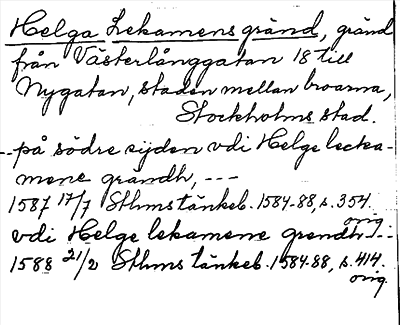 Helga Lekamens gränd, gränd
från Västerlånggatan 18 till
Nygatan, staden mellan broarna,
Stockholms stad.
--på södre sijden vdi Helge lecka-
mene grändh, ---
1587 17/7 Sthms tänkeb. 1584-88, s. 354.
orig.
vdi Helge lekamene grendh ---
1588 21/2 Sthms tänkeb. 1584-88, s. 414.
orig.